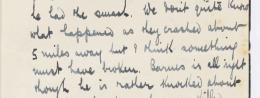 he had the smash. We don't quite know
what happened as they crashed about
5 miles away but I think something
must have broken. Barnes is all right
though he is rather knocked about